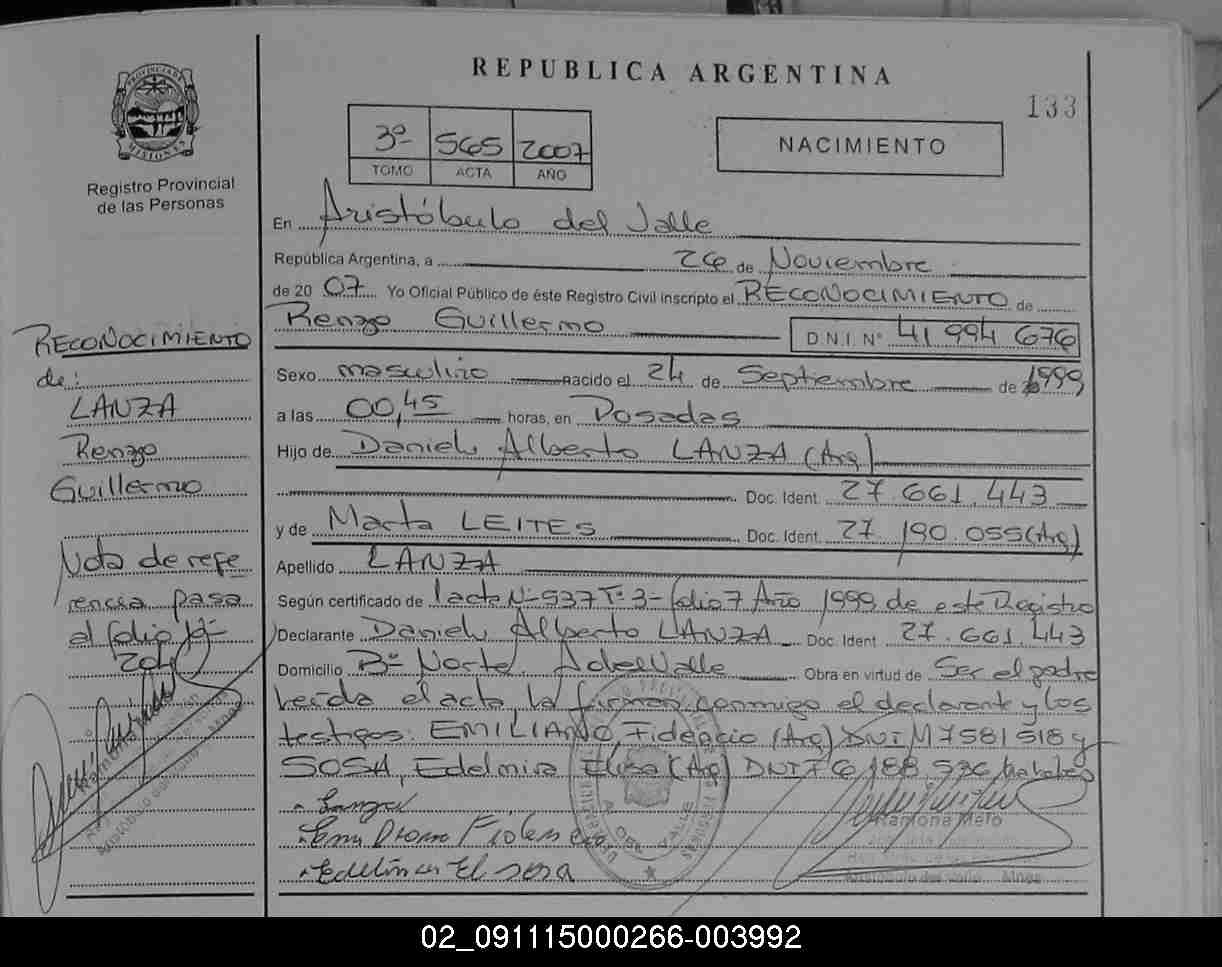 REPUBLICA ARGENTINA
133
PROVINCIA DE MISIONES
Registro Provincial
de las Personas
3º 565 2007
TOMO ACTA AÑO
NACIMIENTO
En Aristóbulo del Valle
República Argentina, a 26 de Noviembre
de 20 07 Yo Oficial Público de éste Registro Civil inscripto el RECONOCIMIENTO de
Renzo Guillermo D.N.I. Nº 41 994 676
Sexo masculino nacido el 24 de Septiembre de 1999
a las 00,45 horas, en Posadas
Hijo de Daniel Alberto LANZA (Arg)
Doc. Ident. 27.661.443
y de Marta LEITES Doc. Ident. 27.190.055 (Arg)
Apellido LANZA
Según certificado de 1 acta Nº 937 Tº 3 folio 7 Año 1999 de este Registro
Declarante Daniel Alberto LANZA Doc. Ident 27.661.443
Domicilio Bº Norte. A del Valle Obra en virtud de Ser el padre
Leída el acta, la firman conmigo el declarante y los
testigos: EMILIANO, Fidencio (Arg) DNI M 7581518 y
SOSA, Edelmira Elisa (Arg) DNI F 6.188.536
Lanza
Ramona Melo
Aristóbulo del Valle Mnes
RECONOCIMIENTO
de:
LANZA
Renzo
Guillermo
Nota de refe
rencia pasa
al folio Nº
204
02_091115000266-003992